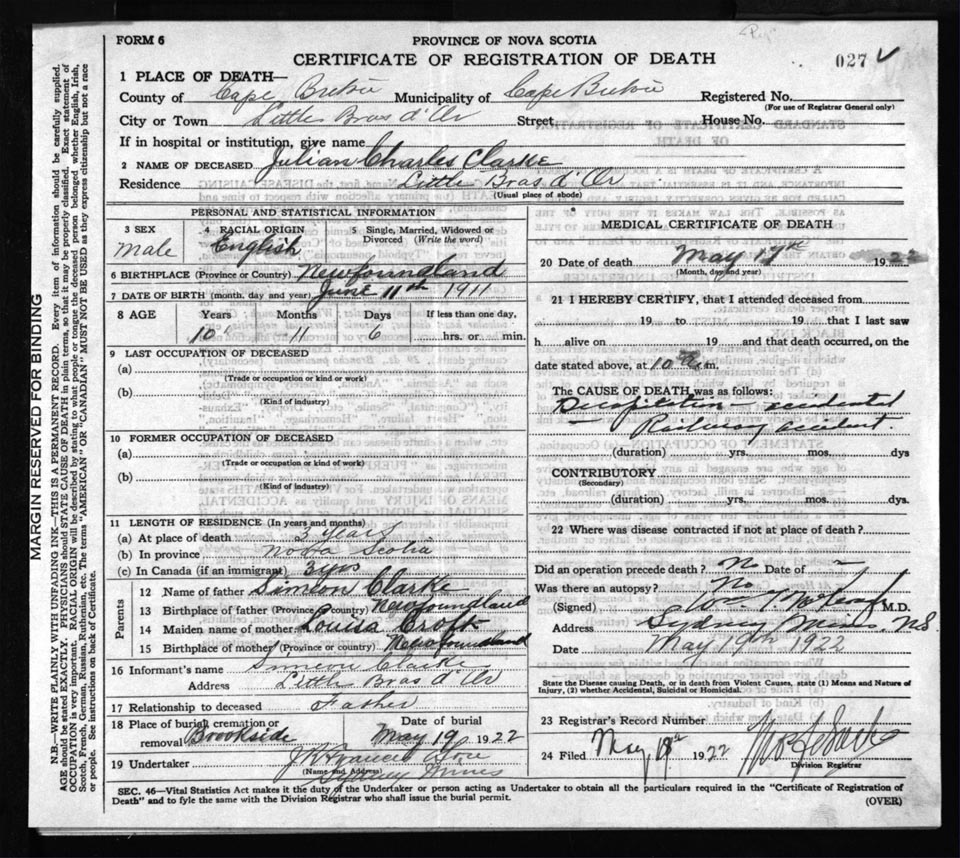 FORM 6
PROVINCE OF NOVA SCOTIA
CERTIFICATE OF REGISTRATION OF DEATH
027
1 PLACE OF DEATH—
County of Cape Breton Municipality of Cape Breton Registered No.
(For use of Registrar General only)
City or Town Little Bras d'Or Street House No.
If in hospital or institution, give name
2 NAME OF DECEASED Julian Charles Clarke
Residence Little Bras d'Or
(Usual place of abode)
PERSONAL AND STATISTICAL INFORMATION
3 SEX
Male
4 RACIAL ORIGIN
English
5 Single, Married, Widowed or Divorced (Write the word)
6 BIRTHPLACE (Province or Country) Newfoundland
7 DATE OF BIRTH (month, day and year) June 11th 1911
8 AGE Years Months Days If less than one day,
10 11 6 hrs. or min.
9 LAST OCCUPATION OF DECEASED
(a)
(Trade or occupation or kind of work)
(b)
(Kind of industry)
10 FORMER OCCUPATION OF DECEASED
(a)
(Trade or occupation or kind of work)
(b)
(Kind of industry)
11 LENGTH OF RESIDENCE (In years and months)
(a) At place of death 3 years
(b) In province Nova Scotia
(c) In Canada (if an immigrant) 3 yrs
Parents
12 Name of father Simeon Clarke
13 Birthplace of father (Province or country) Newfoundland
14 Maiden name of mother Louisa Croft
15 Birthplace of mother (Province or country) Newfoundland
16 Informant's name Simeon Clarke
Address Little Bras d'Or
17 Relationship to deceased Father
18 Place of burial, cremation or removal Brookside
Date of burial May 19 1922
19 Undertaker
(Name and Address)
Sydney Mines
MEDICAL CERTIFICATE OF DEATH
20 Date of death May 17th 1922
(Month, day and year)
21 I HEREBY CERTIFY, that I attended deceased from
19 to 19 that I last saw
h alive on 19 and that death occurred, on the
date stated above, at 10 m.
The CAUSE OF DEATH was as follows:
accidental
Railway accident.
(duration) yrs. mos. dys
CONTRIBUTORY
(Secondary)
(duration) yrs. mos. dys.
22 Where was disease contracted if not at place of death?
Did an operation precede death? No Date of –
Was there an autopsy? No
(Signed) M.D.
Address Sydney Mines, NS
Date May 19th 1922
State the Disease causing Death, or in death from Violent Causes, state (1) Means and Nature of
Injury, (2) whether Accidental, Suicidal or Homicidal.
23 Registrar's Record Number
24 Filed May 1922
Division Registrar
SEC. 46—Vital Statistics Act makes it the duty of the Undertaker or person acting as Undertaker to obtain all the particulars required in the "Certificate of Registration of
Death" and to fyle the same with the Division Registrar who shall issue the burial permit.
(OVER)
MARGIN RESERVED FOR BINDING
N.B.—WRITE PLAINLY WITH UNFADING INK—THIS IS A PERMANENT RECORD. Every item of information should be carefully supplied.
AGE should be stated EXACTLY. PHYSICIANS should STATE CAUSE OF DEATH in plain terms, so that it may be properly classified. Exact statement of
OCCUPATION is very important. RACIAL ORIGIN will be described by stating to what people or tongue the deceased person belonged whether English, Irish,
Scotch, French, German, Russian, Ruthenian, etc. The terms "AMERICAN" OR "CANADIAN" MUST NOT BE USED as they express citizenship but not a race
or people. See instructions on back of Certificate.